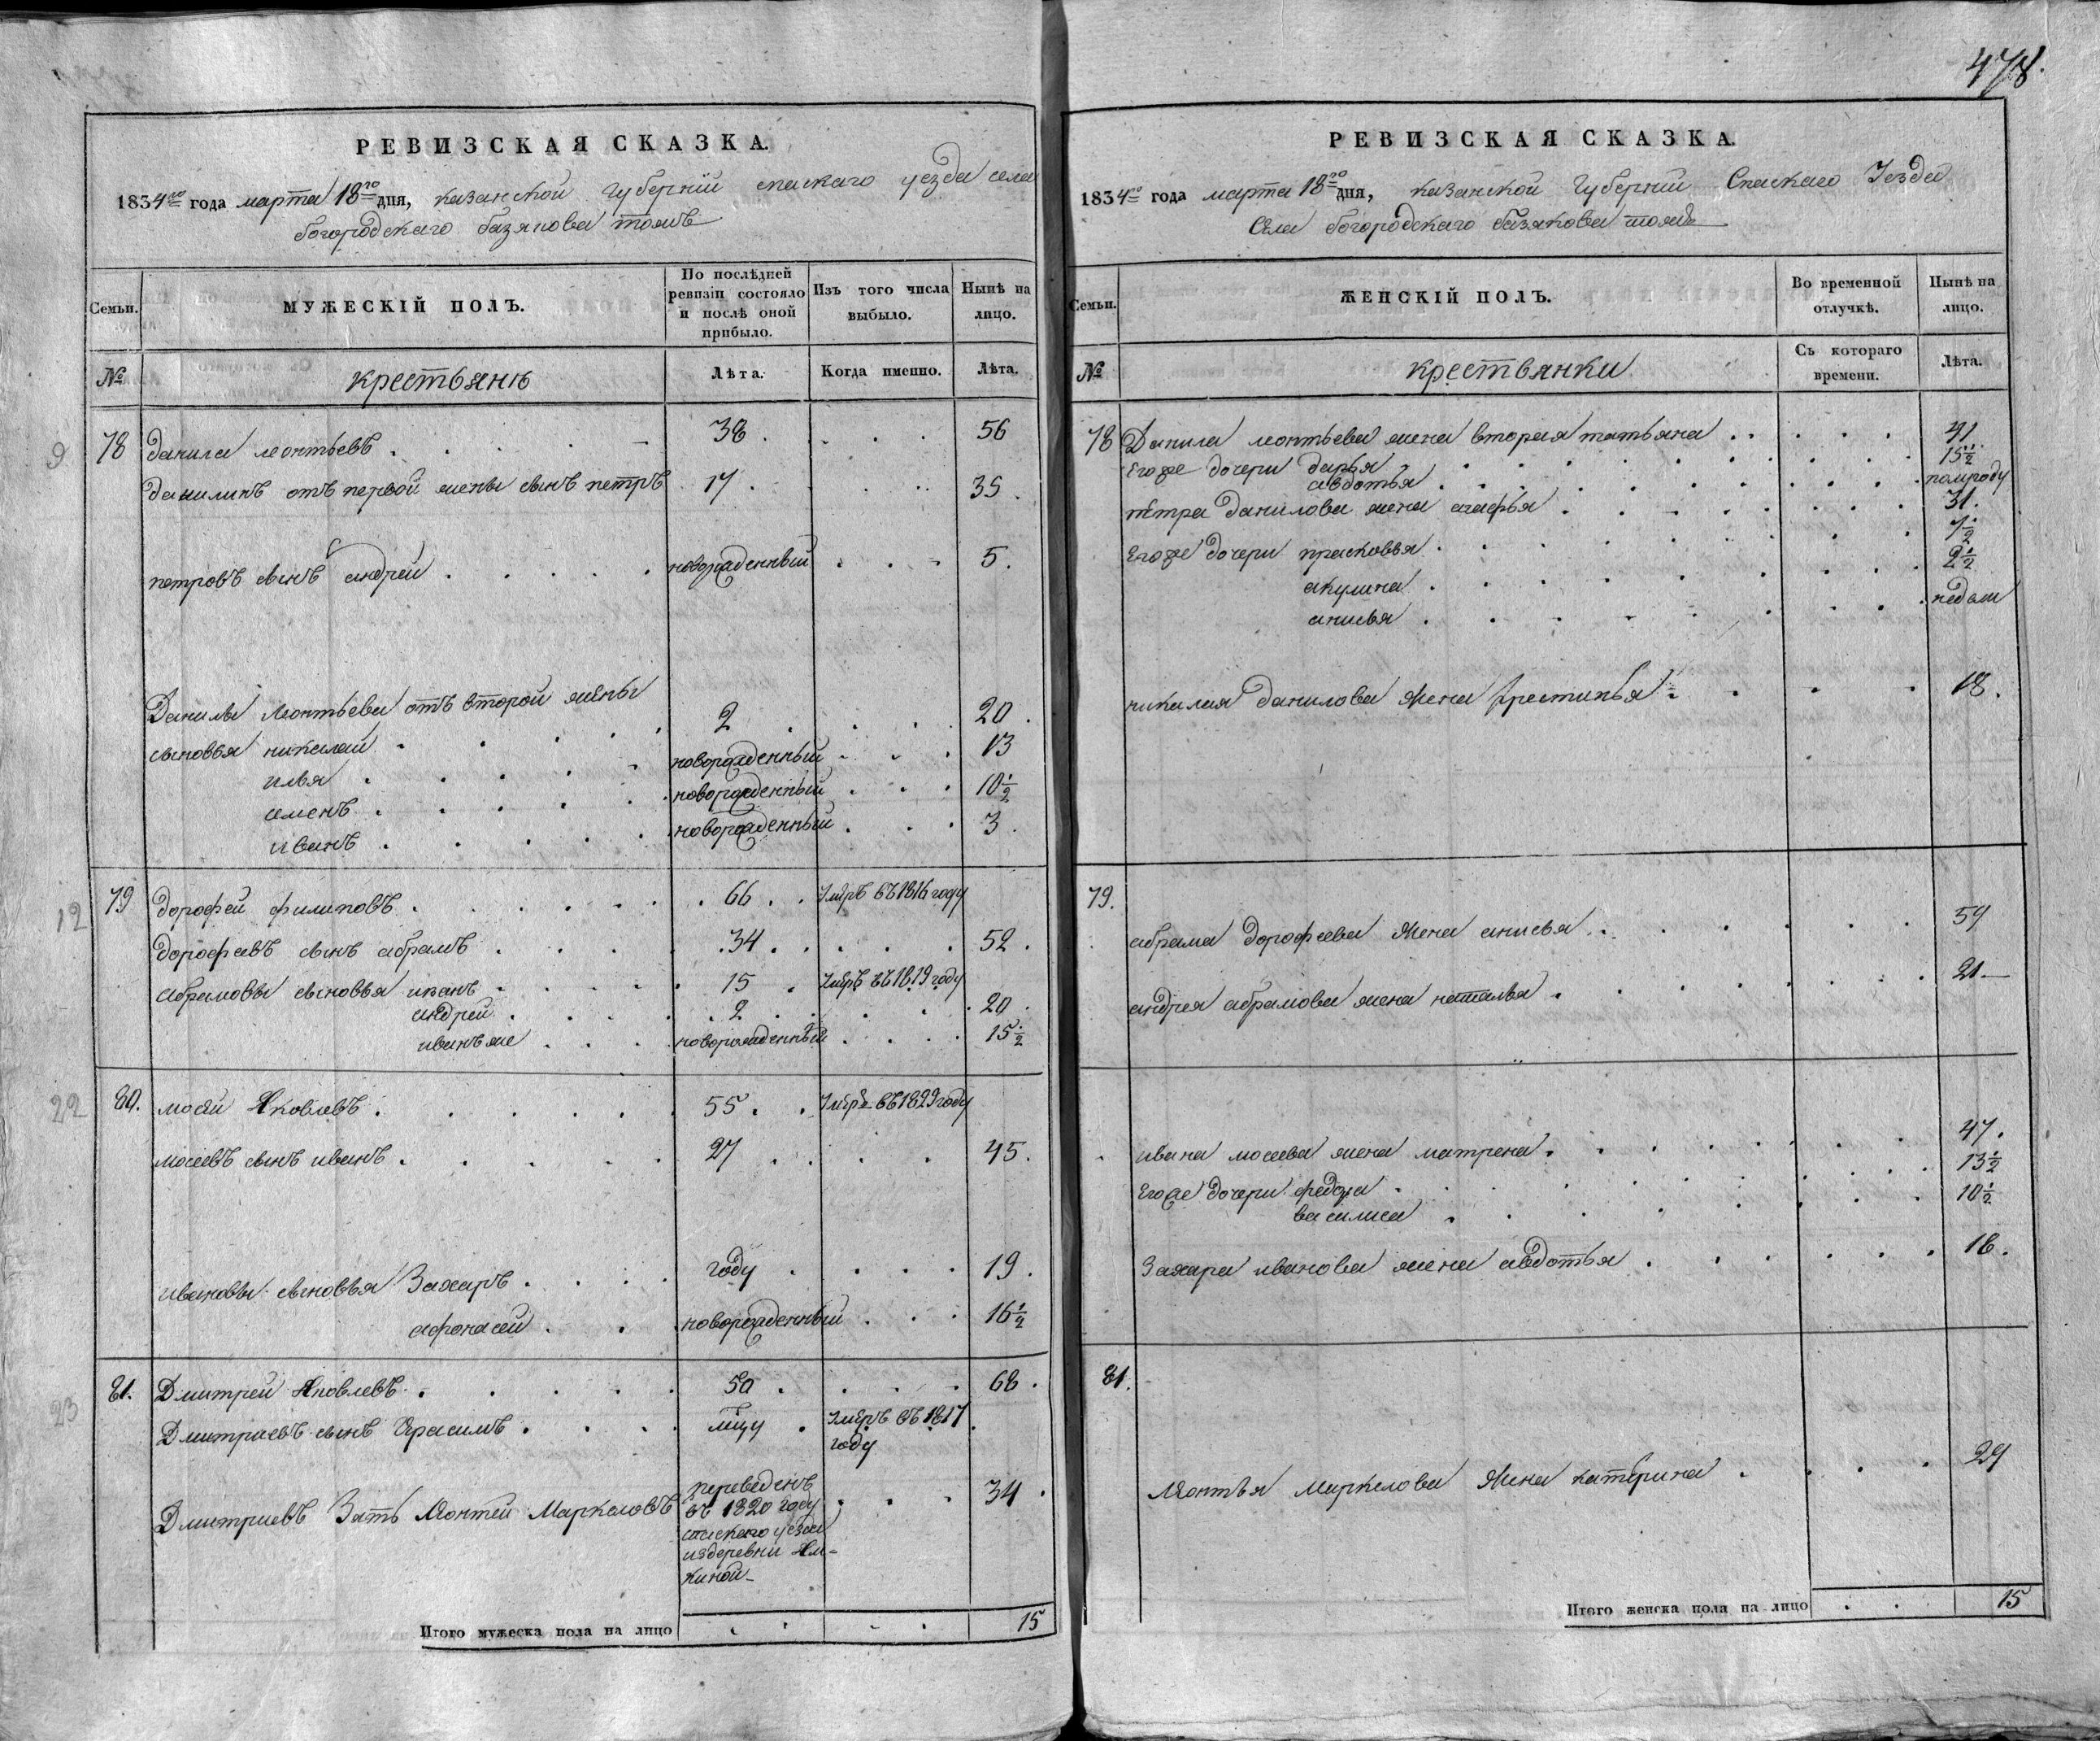 478.
РЕВИЗСКАЯ СКАЗКА.
1834го года марта 18го дня, казанской губерніи спаскаго уезда села
богородскаго базякова тожъ
Семьи.
МУЖЕСКІЙ ПОЛЪ.
По послѣдней
ревизіи состояло
и послѣ оной
прибыло.
Изъ того числа
выбыло.
Нынѣ на
лицо.
№
крестьянѣ
Лѣта.
Когда именно.
Лѣта.
9 78 данила леонтьевъ . 38 . . . . 56
данилинъ отъ первой жены сынъ петръ 17 . . . . 35 .
петровъ сынъ андрей . . . . . новорожденный . . . 5 .
Данилы леонтьева отъ второй жены
сыновья николай . . . . . 2 . . . . 20 .
илья . . . . . новорожденный . . . 13
семенъ . . . . . новорожденный . . . 10 1/2
иванъ . . . . . новорожденный . . . 3 .
12 79 дорофей филиповъ . . . . . . 66 . . Умеръ въ 1816 году
дорофеевъ сынъ абрамъ . . . . . 34 . . . . . 52 .
абрамовы сыновья иванъ . . . . . 15 . Умеръ въ 1819 году
андрей . . . . . 2 . . . . 20 .
иванъ же . . . . новорожденный . . . . 15 1/2
22 80. мосей Яковлевъ . . . . . . 55 . . Умеръ въ 1829 году
мосеевъ сынъ иванъ . . . . . 27 . . . . 45 .
ивановы сыновья Захаръ . . . . году . . . . 19 .
афонасей . . . новорожденный . . . 16 1/2
23 81. Дмитрей Яковлевъ . . . . . . 50 . . . . 68 .
Дмитриевъ сынъ Герасимъ . . . . мцу . Умеръ въ 1817 .
году
Дмитриевъ Зять Леонтей Маркеловъ переведенъ . . . 34 .
въ 1820 году
спаскаго уезда
из деревни Ям-
киной
Итого мужеска пола на лицо . . . . 15
РЕВИЗСКАЯ СКАЗКА.
1834го года марта 18го дня, казанской Губерніи Спаскаго Уезда
Села богородскаго базякова тожъ
Семьи.
ЖЕНСКІЙ ПОЛЪ.
Во временной
отлучкѣ.
Нынѣ на
лицо.
№
крестьянки
Съ котораго
времени.
Лѣта.
78 Данила леонтьева жена вторая татьяна . . . . . 41
Егоже дочери дарья . . . . . 15 1/2
авдотья . . . . . полугоду
петра данилова жена агафья . . . . . 31 .
Егоже дочери прасковья . . . . . 7 1/2
акулина . . . . . 2 1/2
анисья . . . . . недели
николая данилова жена фрестинья . . . . 18 .
79.
абрама дорофеева жена анисья . . . . . 59
андрея абрамова жена наталья . . . . . 21
ивана мосеева жена матрена . . . . . 47 .
Егоже дочери федора . . . . . 13 1/2
василиса . . . . . 10 1/2
Захара иванова жена авдотья . . . . . 18 .
81.
Леонтья Маркелова Жена катерина . . . . 29
Итого женска пола на лицо . . 15